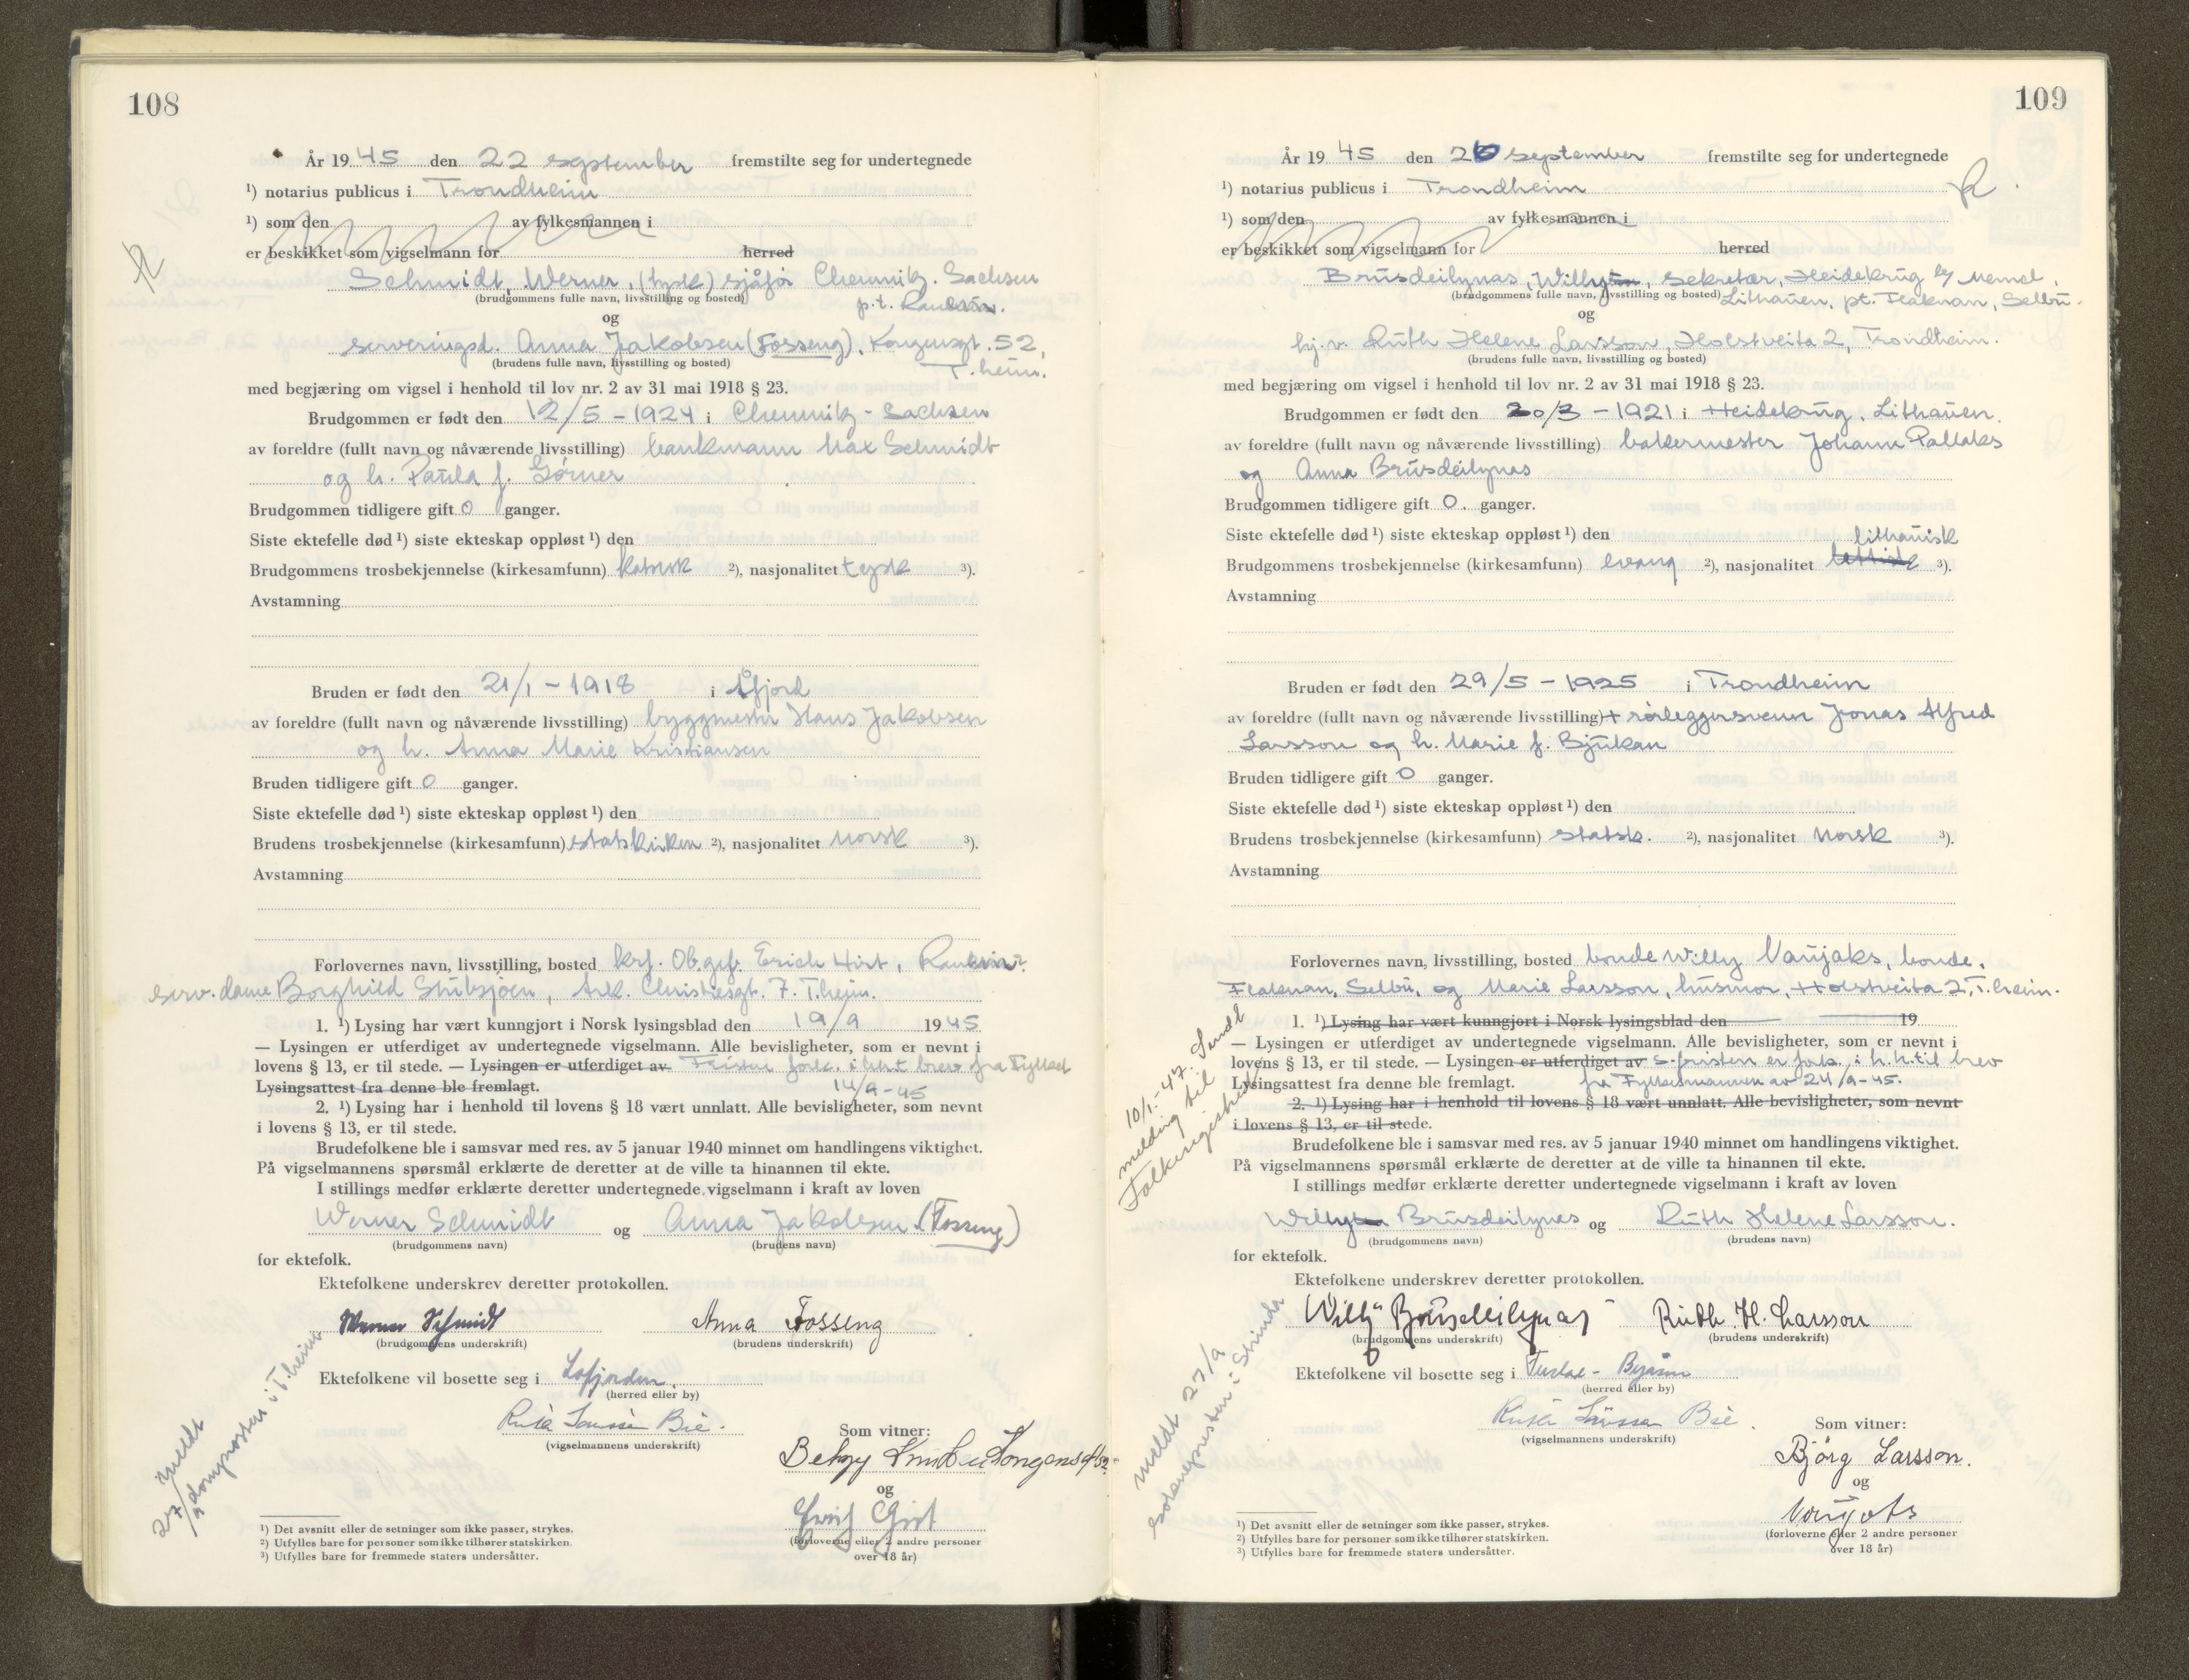 108
År 1945 den 22 september fremstilte seg for undertegnede
¹) notarius publicus i Trondheim
¹) som den av fylkesmannen i
er beskikket som vigselmann for herred
Schmidt, Werner, (tysk) sjåfør Chemnitz. Sachsen
(brudgommens fulle navn, livsstilling og bosted) p.t.
og
serveringsd. Anna Jakobsen (Fosseng), Kongensgt. 52,
(brudens fulle navn, livsstilling og bosted) T.heim.
med begjæring om vigsel i henhold til lov nr. 2 av 31 mai 1918 § 23.
Brudgommen er født den 12/5 - 1924 i Chemnitz - Sachsen
av foreldre (fullt navn og nåværende livsstilling) bankmann Max Schmidt
og h. Paula f. Görner
Brudgommen tidligere gift 0 ganger.
Siste ektefelle død ¹) siste ekteskap oppløst ¹) den
Brudgommens trosbekjennelse (kirkesamfunn) katolsk ²), nasjonalitet tysk ³).
Avstamning
Bruden er født den 21/1 - 1918 i Åfjord
av foreldre (fullt navn og nåværende livsstilling) byggmester Hans Jakobsen
og h. Anna Marie Kristiansen
Bruden tidligere gift 0 ganger.
Siste ektefelle død ¹) siste ekteskap oppløst ¹) den
Brudens trosbekjennelse (kirkesamfunn) statskirken ²), nasjonalitet norsk ³).
Avstamning
Forlovernes navn, livsstilling, bosted krf. Ob.gefr. Erich Hirt,
serv. dame Borghild Stibsjoen, Ark. Christiesgt. 7. T.heim.
1. ¹) Lysing har vært kunngjort i Norsk lysingsblad den 19/9 1945
— Lysingen er utferdiget av undertegnede vigselmann. Alle bevisligheter, som er nevnt i
lovens § 13, er til stede. — Lysingen er utferdiget av Fristen fork. i h.h.t brev fra Fylket
Lysingsattest fra denne ble fremlagt. 14/9-45
2. ¹) Lysing har i henhold til lovens § 18 vært unnlatt. Alle bevisligheter, som nevnt
i lovens § 13, er til stede.
Brudefolkene ble i samsvar med res. av 5 januar 1940 minnet om handlingens viktighet.
På vigselmannens spørsmål erklærte de deretter at de ville ta hinannen til ekte.
I stillings medfør erklærte deretter undertegnede vigselmann i kraft av loven
Werner Schmidt og Anna Jakobsen (Fosseng)
(brudgommens navn) (brudens navn)
for ektefolk.
Ektefolkene underskrev deretter protokollen.
Werner Schmidt Anna Fosseng
(brudgommens underskrift) (brudens underskrift)
Ektefolkene vil bosette seg i
(herred eller by)
Bie.
(vigselmannens underskrift)
Som vitner:
Kongensgt 52
og
Erich Hirt
(forloverne eller 2 andre personer
over 18 år)
meldt
27/9 domprosten i T.heim
¹) Det avsnitt eller de setninger som ikke passer, strykes.
²) Utfylles bare for personer som ikke tilhører statskirken.
³) Utfylles bare for fremmede staters undersåtter.
109
År 1945 den 26 september fremstilte seg for undertegnede
¹) notarius publicus i Trondheim
¹) som den av fylkesmannen i
er beskikket som vigselmann for herred
Brusdeilynas, Willy, sekretær, Heidekrug by Memel,
(brudgommens fulle navn, livsstilling og bosted) Lithauen, pt. Flaknan, Selbu.
og
hj.v. Ruth Helene Larsson, Holstveita 2, Trondheim.
(brudens fulle navn, livsstilling og bosted)
med begjæring om vigsel i henhold til lov nr. 2 av 31 mai 1918 § 23.
Brudgommen er født den 20/3 - 1921 i Heidekrug. Lithauen.
av foreldre (fullt navn og nåværende livsstilling) bakermester Johann Pallaks
og Anna Brusdeilynas
Brudgommen tidligere gift 0. ganger.
Siste ektefelle død ¹) siste ekteskap oppløst ¹) den
lithauisk
Brudgommens trosbekjennelse (kirkesamfunn) evang ²), nasjonalitet lettisk ³).
Avstamning
Bruden er født den 29/5 - 1925 i Trondheim
av foreldre (fullt navn og nåværende livsstilling) + rørleggersvenn Jonas Alfred
Larsson og h. Marie f. Bjukan
Bruden tidligere gift 0 ganger.
Siste ektefelle død ¹) siste ekteskap oppløst ¹) den
Brudens trosbekjennelse (kirkesamfunn) statsk. ²), nasjonalitet norsk ³).
Avstamning
Forlovernes navn, livsstilling, bosted bonde Willy Vaujaks, bonde,
Flaknan, Selbu, og Marie Larsson, husmor, Holstveita 2, T.heim.
1. ¹) Lysing har vært kunngjort i Norsk lysingsblad den 19
— Lysingen er utferdiget av undertegnede vigselmann. Alle bevisligheter, som er nevnt i
lovens § 13, er til stede. — Lysingen er utferdiget av s-fristen er fork. i h.h.til brev
Lysingsattest fra denne ble fremlagt. fra Fylkesmannen av 24/9-45.
2. ¹) Lysing har i henhold til lovens § 18 vært unnlatt. Alle bevisligheter, som nevnt
i lovens § 13, er til stede.
Brudefolkene ble i samsvar med res. av 5 januar 1940 minnet om handlingens viktighet.
På vigselmannens spørsmål erklærte de deretter at de ville ta hinannen til ekte.
I stillings medfør erklærte deretter undertegnede vigselmann i kraft av loven
Willy Brusdeilynas og Ruth Helene Larsson.
(brudgommens navn) (brudens navn)
for ektefolk.
Ektefolkene underskrev deretter protokollen.
Willy Brusdeilynas Ruth H. Larsson
(brudgommens underskrift) (brudens underskrift)
Ektefolkene vil bosette seg i
(herred eller by)
Bie.
(vigselmannens underskrift)
Som vitner:
Bjørg Larsson.
og
(forloverne eller 2 andre personer
over 18 år)
10/1.-47. Sendt
melding til
Folkeregisteret
meldt 27/9
soknepresten i Strinda
¹) Det avsnitt eller de setninger som ikke passer, strykes.
²) Utfylles bare for personer som ikke tilhører statskirken.
³) Utfylles bare for fremmede staters undersåtter.